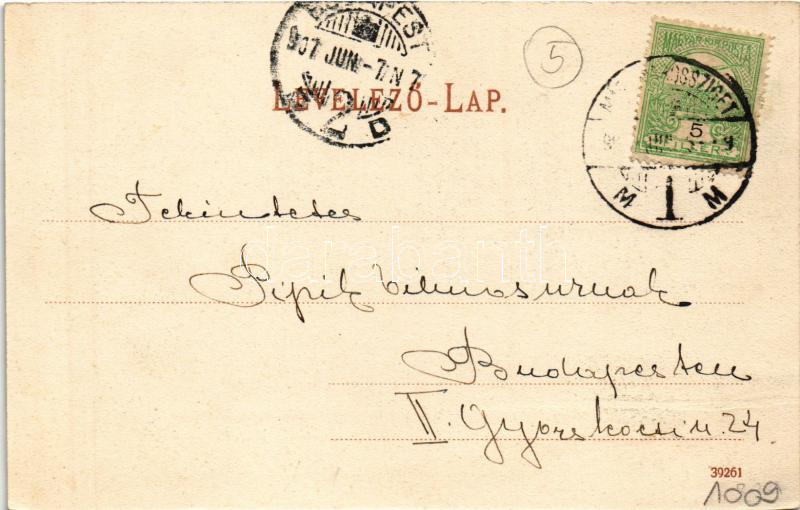 BUDAPEST
907 JUN. -7 N 7
5
MAGYAR KIR. POSTA
LEVELEZŐ-LAP.
5
FILLÉR
M 1 M
Tekintetes
darabanth
Pipik Vilmos urnak
Budapesten
II. Gyorskocsi u. 24.
39261
1009